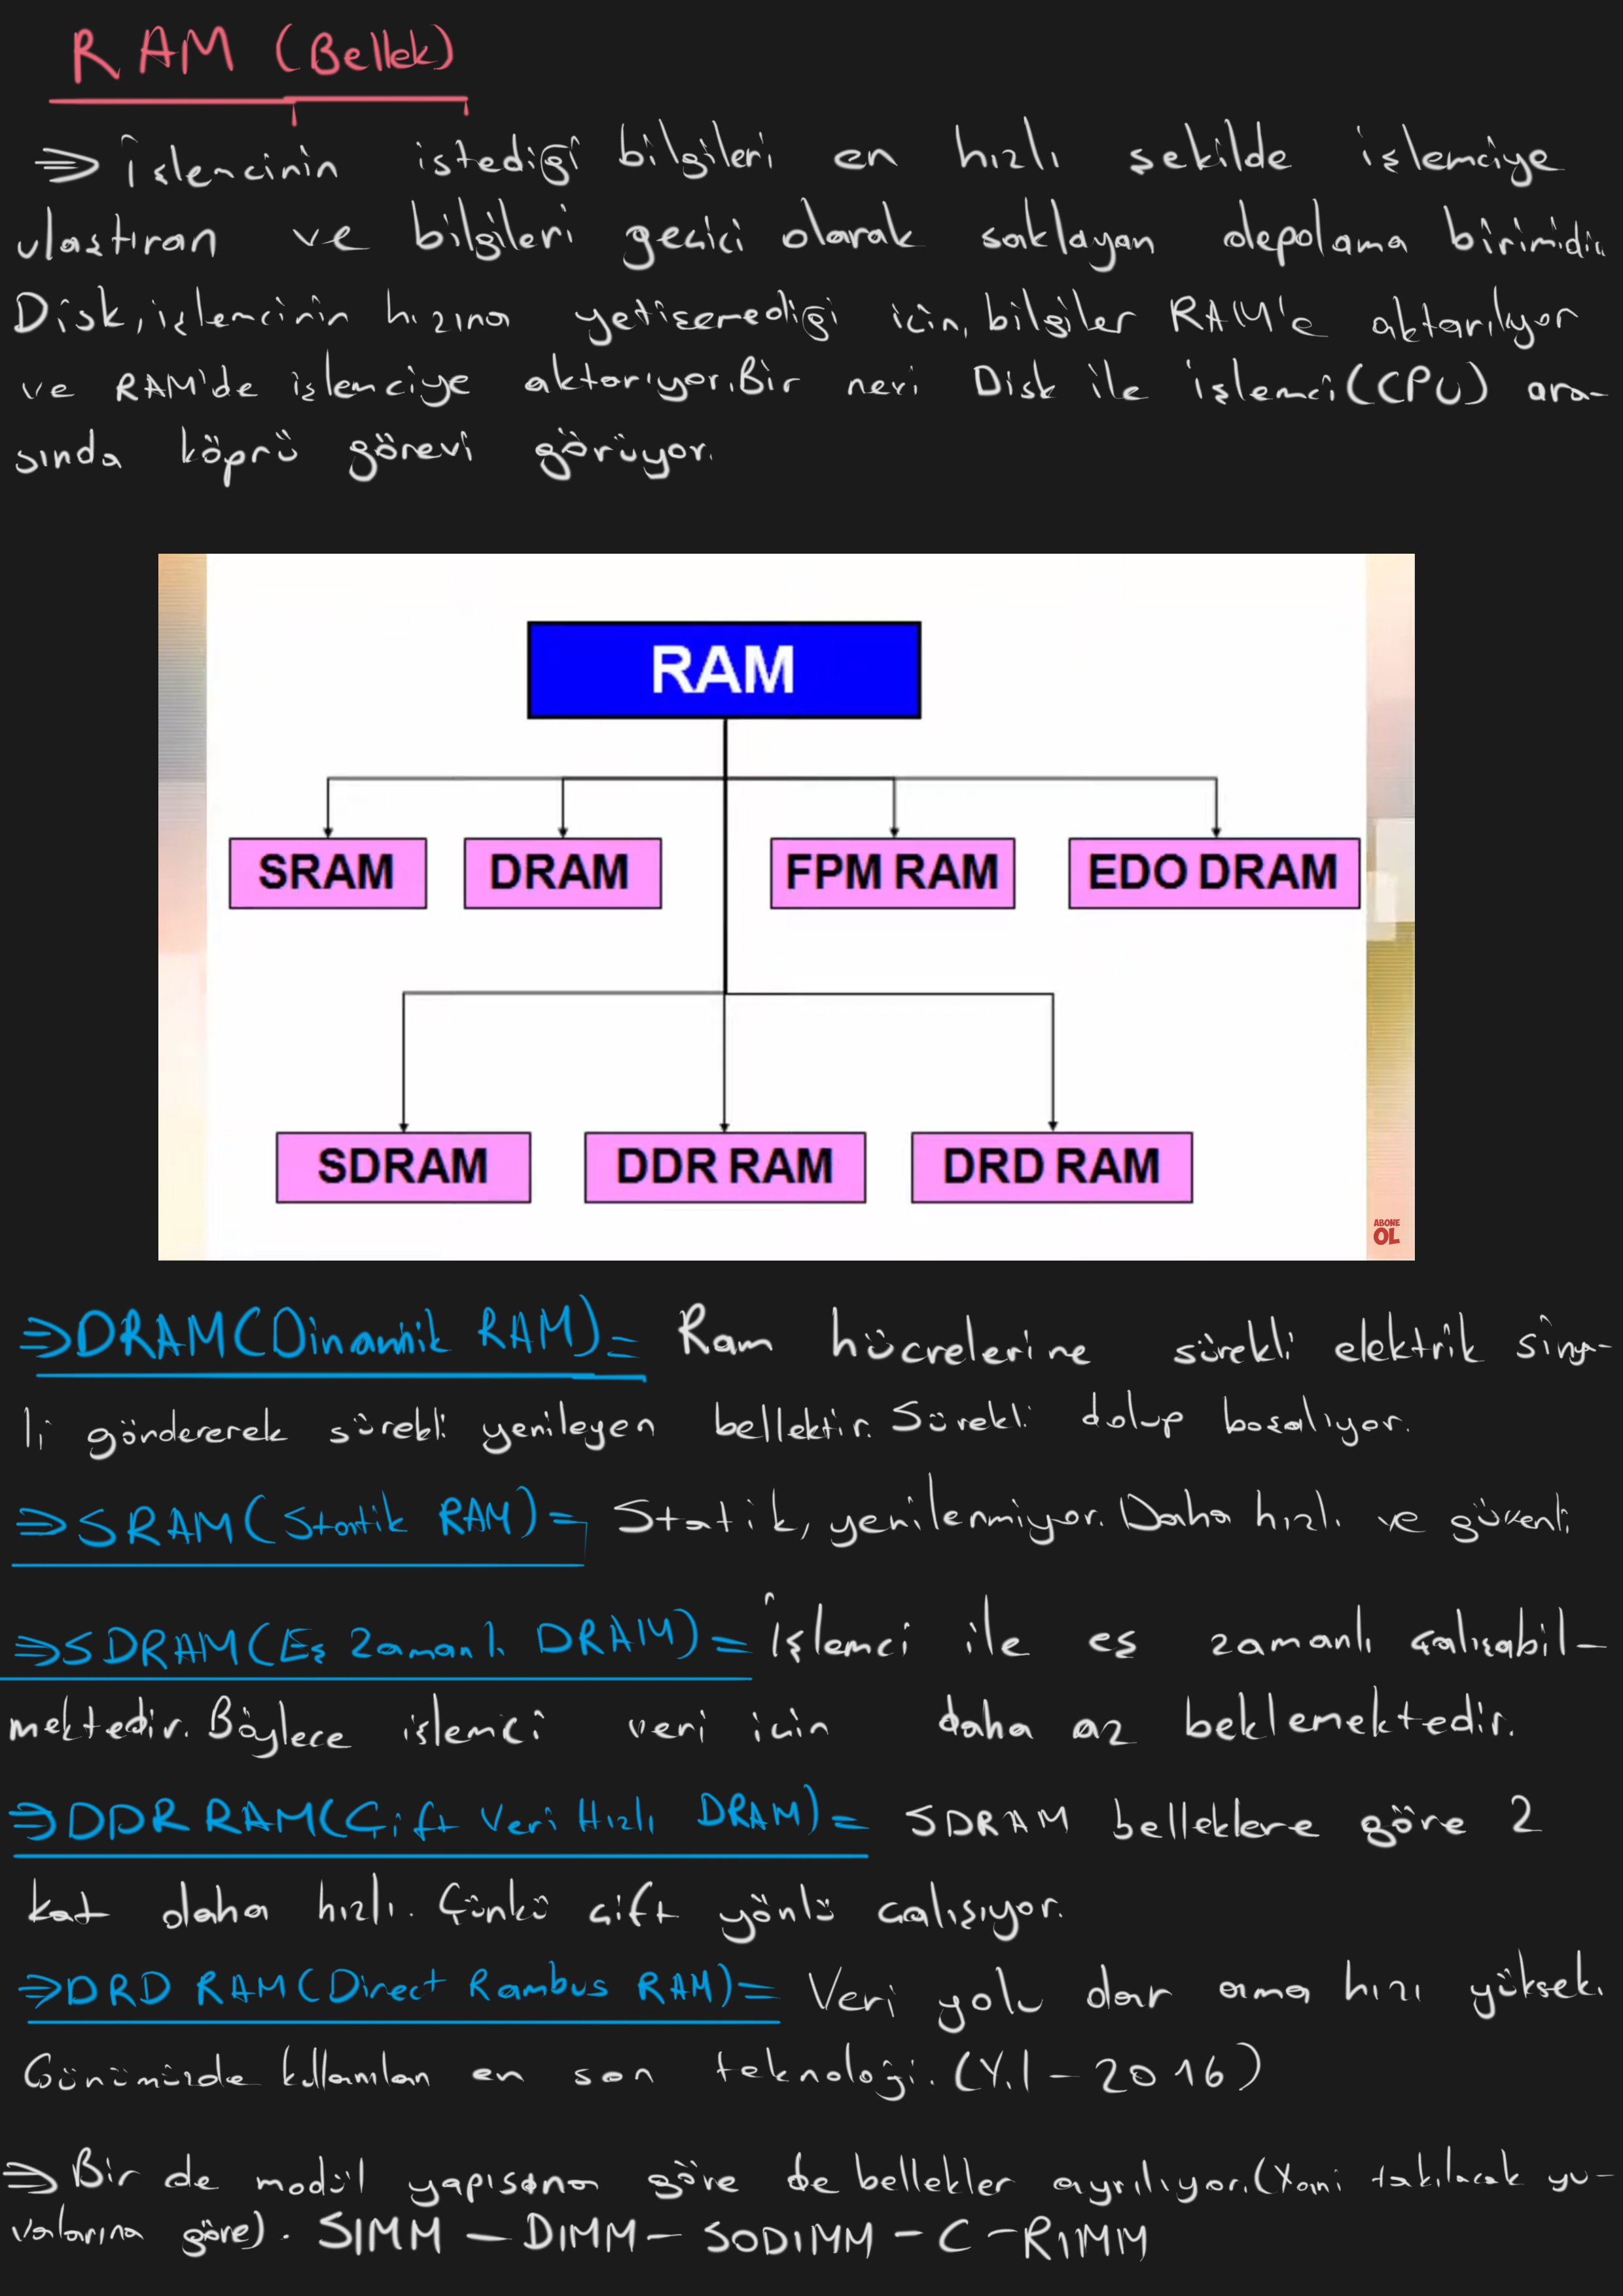 RAM (Bellek)
⇒ İşlemcinin istediği bilgileri en hızlı şekilde işlemciye
ulaştıran ve bilgileri geçici olarak saklayan depolama birimidir.
Disk, işlemcinin hızına yetişemediği için, bilgiler RAM'e aktarılıyor
ve RAM'de işlemciye aktarıyor. Bir nevi Disk ile işlemci (CPU) ara-
sında köprü görevi görüyor.
RAM
SRAM DRAM FPM RAM EDO DRAM
SDRAM DDR RAM DRD RAM
ABONE
OL
⇒DRAM(Dinamik RAM)= Ram hücrelerine sürekli elektrik sinya-
li göndererek sürekli yenileyen bellektir. Sürekli dolup boşalıyor.
⇒SRAM(Statik RAM)= Statik, yenilenmiyor. Daha hızlı ve güvenli
⇒SDRAM(Eş Zamanlı DRAM)= İşlemci ile eş zamanlı çalışabil-
mektedir. Böylece işlemci veri için daha az beklemektedir.
⇒DDR RAM(Çift Veri Hızlı DRAM)= SDRAM belleklere göre 2
kat daha hızlı. Çünkü çift yönlü çalışıyor.
⇒DRD RAM(Direct Rambus RAM)= Veri yolu dar ama hızı yüksek.
Günümüzde kullanılan en son teknoloji. (Yıl - 2016)
⇒ Bir de modül yapısına göre de bellekler ayrılıyor. (Yani takılacak yu-
valarına göre). SIMM - DIMM - SODIMM - C - RIMM